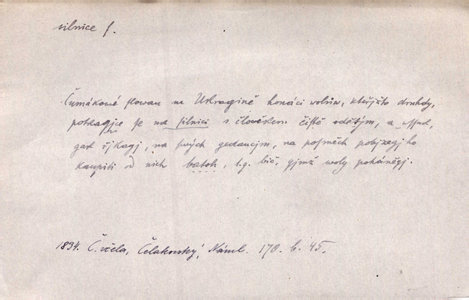 silnice f.
Čumákowé slowau na Ukragině honáci wolůw, kteřjžto druhdy,
potkagjce se na silnici s člowěkem čistě oděným, a
gak řjkagj, na swých gedaucjm, na posměch pobjzegj ho
kaupiti od nich batoh, t.g. bič, gjmž woly poháněgj.
1834. Č. včela, Čelakovský, Náml. 170. b. 45.